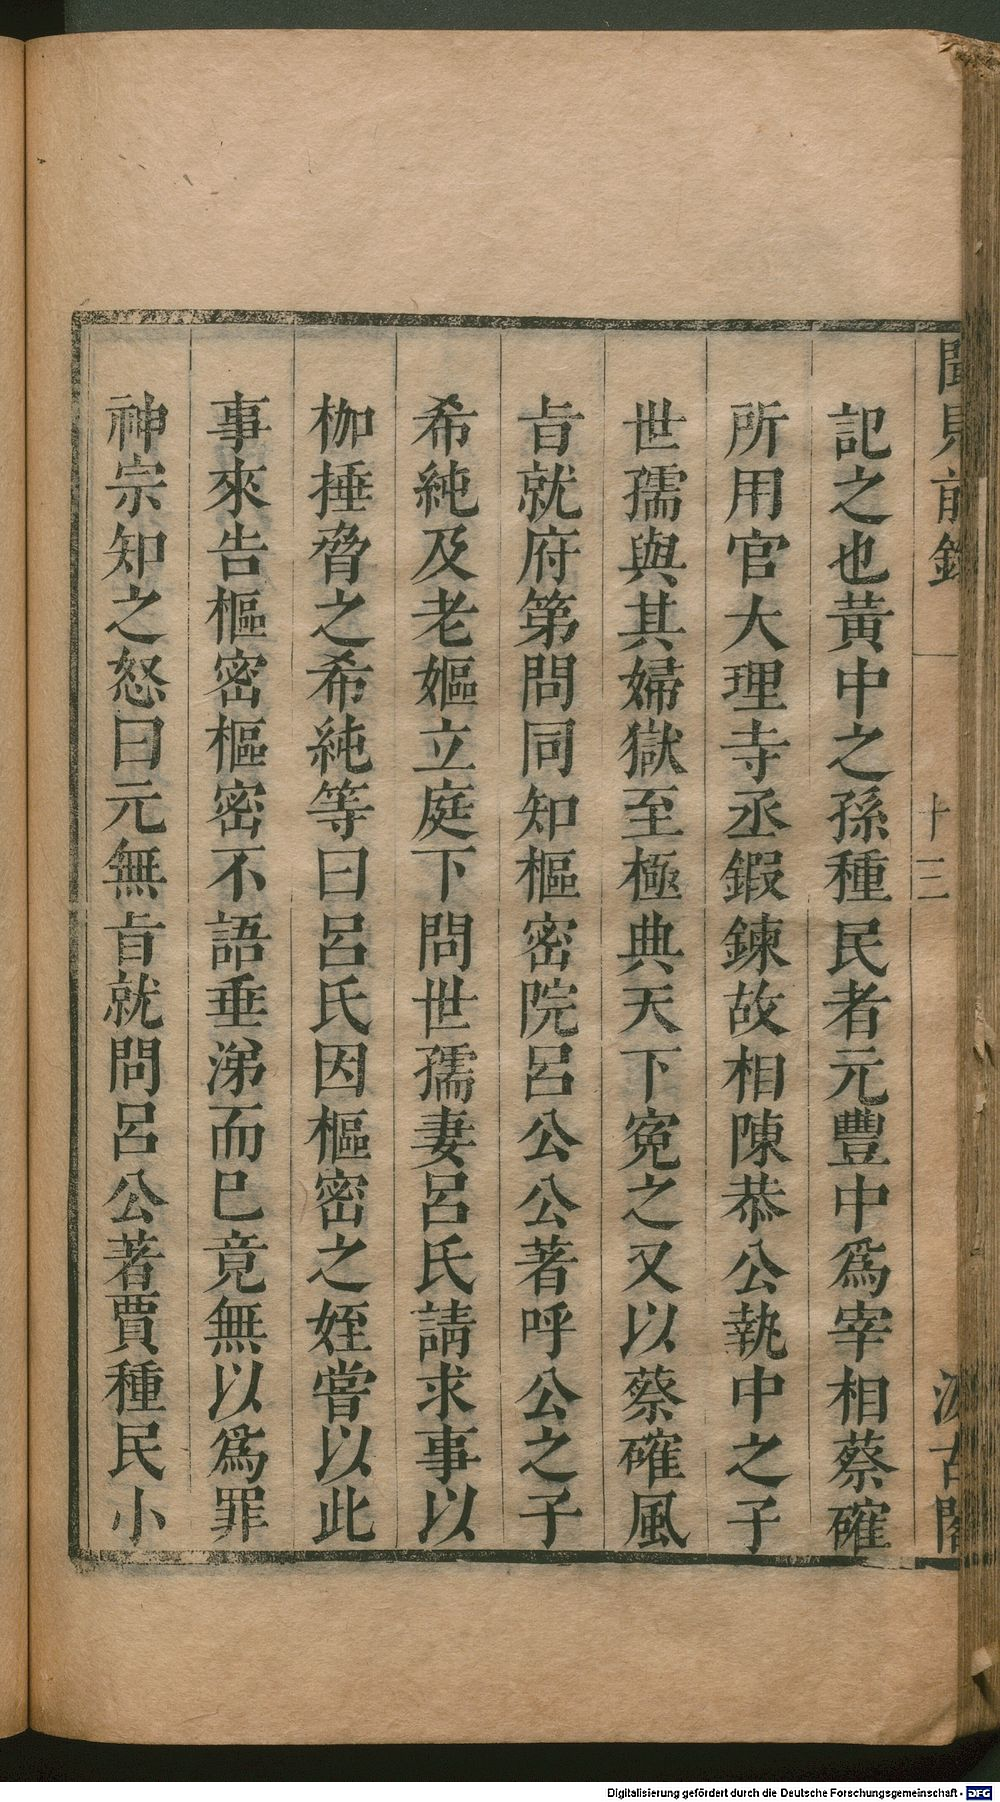 聞見前錄
十三
汲古閣
記之也黃中之孫種民者元豐中爲宰相蔡確
所用官大理寺丞鍛鍊故相陳恭公執中之子
世孺與其婦獄至極典天下寃之又以蔡確風
㫖就府第問同知樞密院呂公公著呼公之子
希純及老嫗立庭下問世孺妻呂氏請求事以
枷捶脅之希純等曰呂氏因樞密之姪嘗以此
事來告樞密樞密不語垂涕而巳竟無以爲罪
神宗知之怒曰元無㫖就問呂公著賈種民小
Digitalisierung gefördert durch die Deutsche Forschungsgemeinschaft - DFG